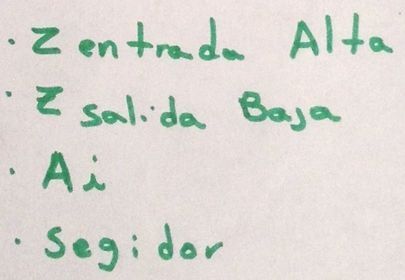 · Z entrada Alta
· Z salida Baja
· Ai
· Segidor